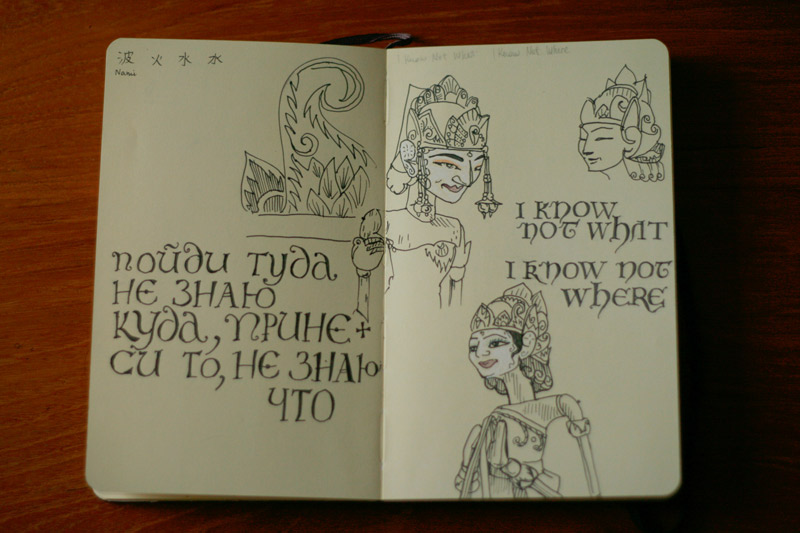 波 火 水 水
Nami
пойди туда
не знаю
куда, прине+
си то, не знаю
что
I Know Not What I Know Not Where
I KNOW
NOT WHAT
I KNOW NOT
WHERE